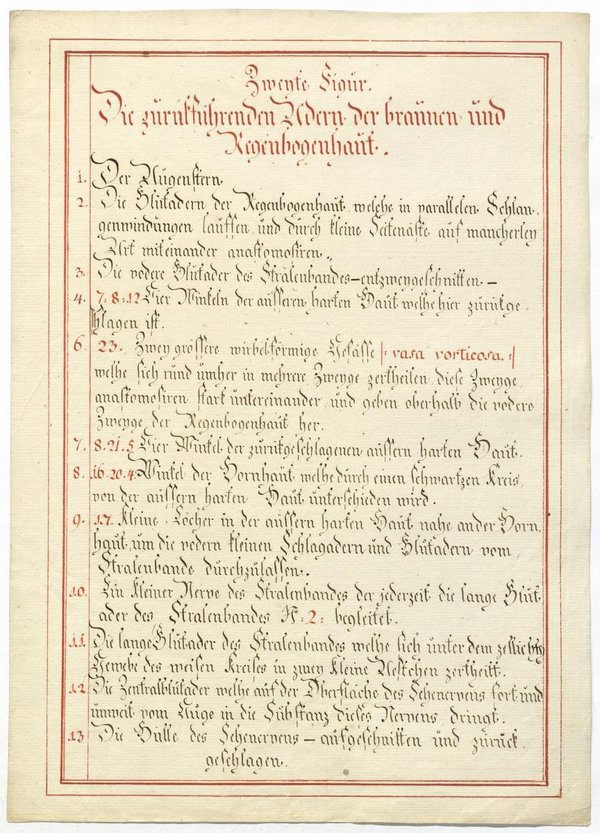 Zweyte Figur.
Die zurükführenden Adern der braunen und
Regenbogenhaut.
1. Der Augenstern
2. Die Blutadern der Regenbogenhaut welche in parallelen Schlan-
genwindungen lauffen, und durch kleine Seitenäste auf mancherley
Art miteinander anastomosiren.,
3. Die vodere Blutader des Stralenbandes – entzweygeschnitten. –
4. 7. 8. 12 Vier Winkeln der äusseren harten Haut welhe hier zurükge-
schlagen ist.
6. 23. Zwey grössere wirbelförmige Gefässe |: vasa vorticosa. :|
welhe sich rund umher in mehrere Zweyge zertheilen, diese Zweyge
anastomosiren stark untereinander, und geben oberhalb die vodere
Zweyge der Regenbogenhaut her.
7. 8. 21. 5 Vier Winkel der zurükgeschlagenen äussern harten Haut.
8. 16. 20. 4 Winkel der Hornhaut welhe durch einen schwartzen Kreis
von der äussern harten Haut unterschieden wird.
9. 17. Kleine Löcher in der äussern harten Haut nahe an der Horn-
haut, um die vodern kleinen Schlagadern und Blutadern vom
Stralenbande durchzulassen.
10. Ein kleiner Nerve des Stralenbandes der jederzeit die lange Blut-
ader des Stralenbandes N: 2: begleitet.
11. Die lange Blutader des Stralenbandes welhe sich unter dem zellichten
Gewebe des weisen Kreises in zwey kleine Aestchen zertheilt.
12 Die Zentralblutader welhe auf der Oberfläche des Sehenervens fort und
unweit vom Auge in die Substanz dieses Nervens dringt.
13 Die Hülle des Sehenervens – aufgeschnitten und zurück
geschlagen.